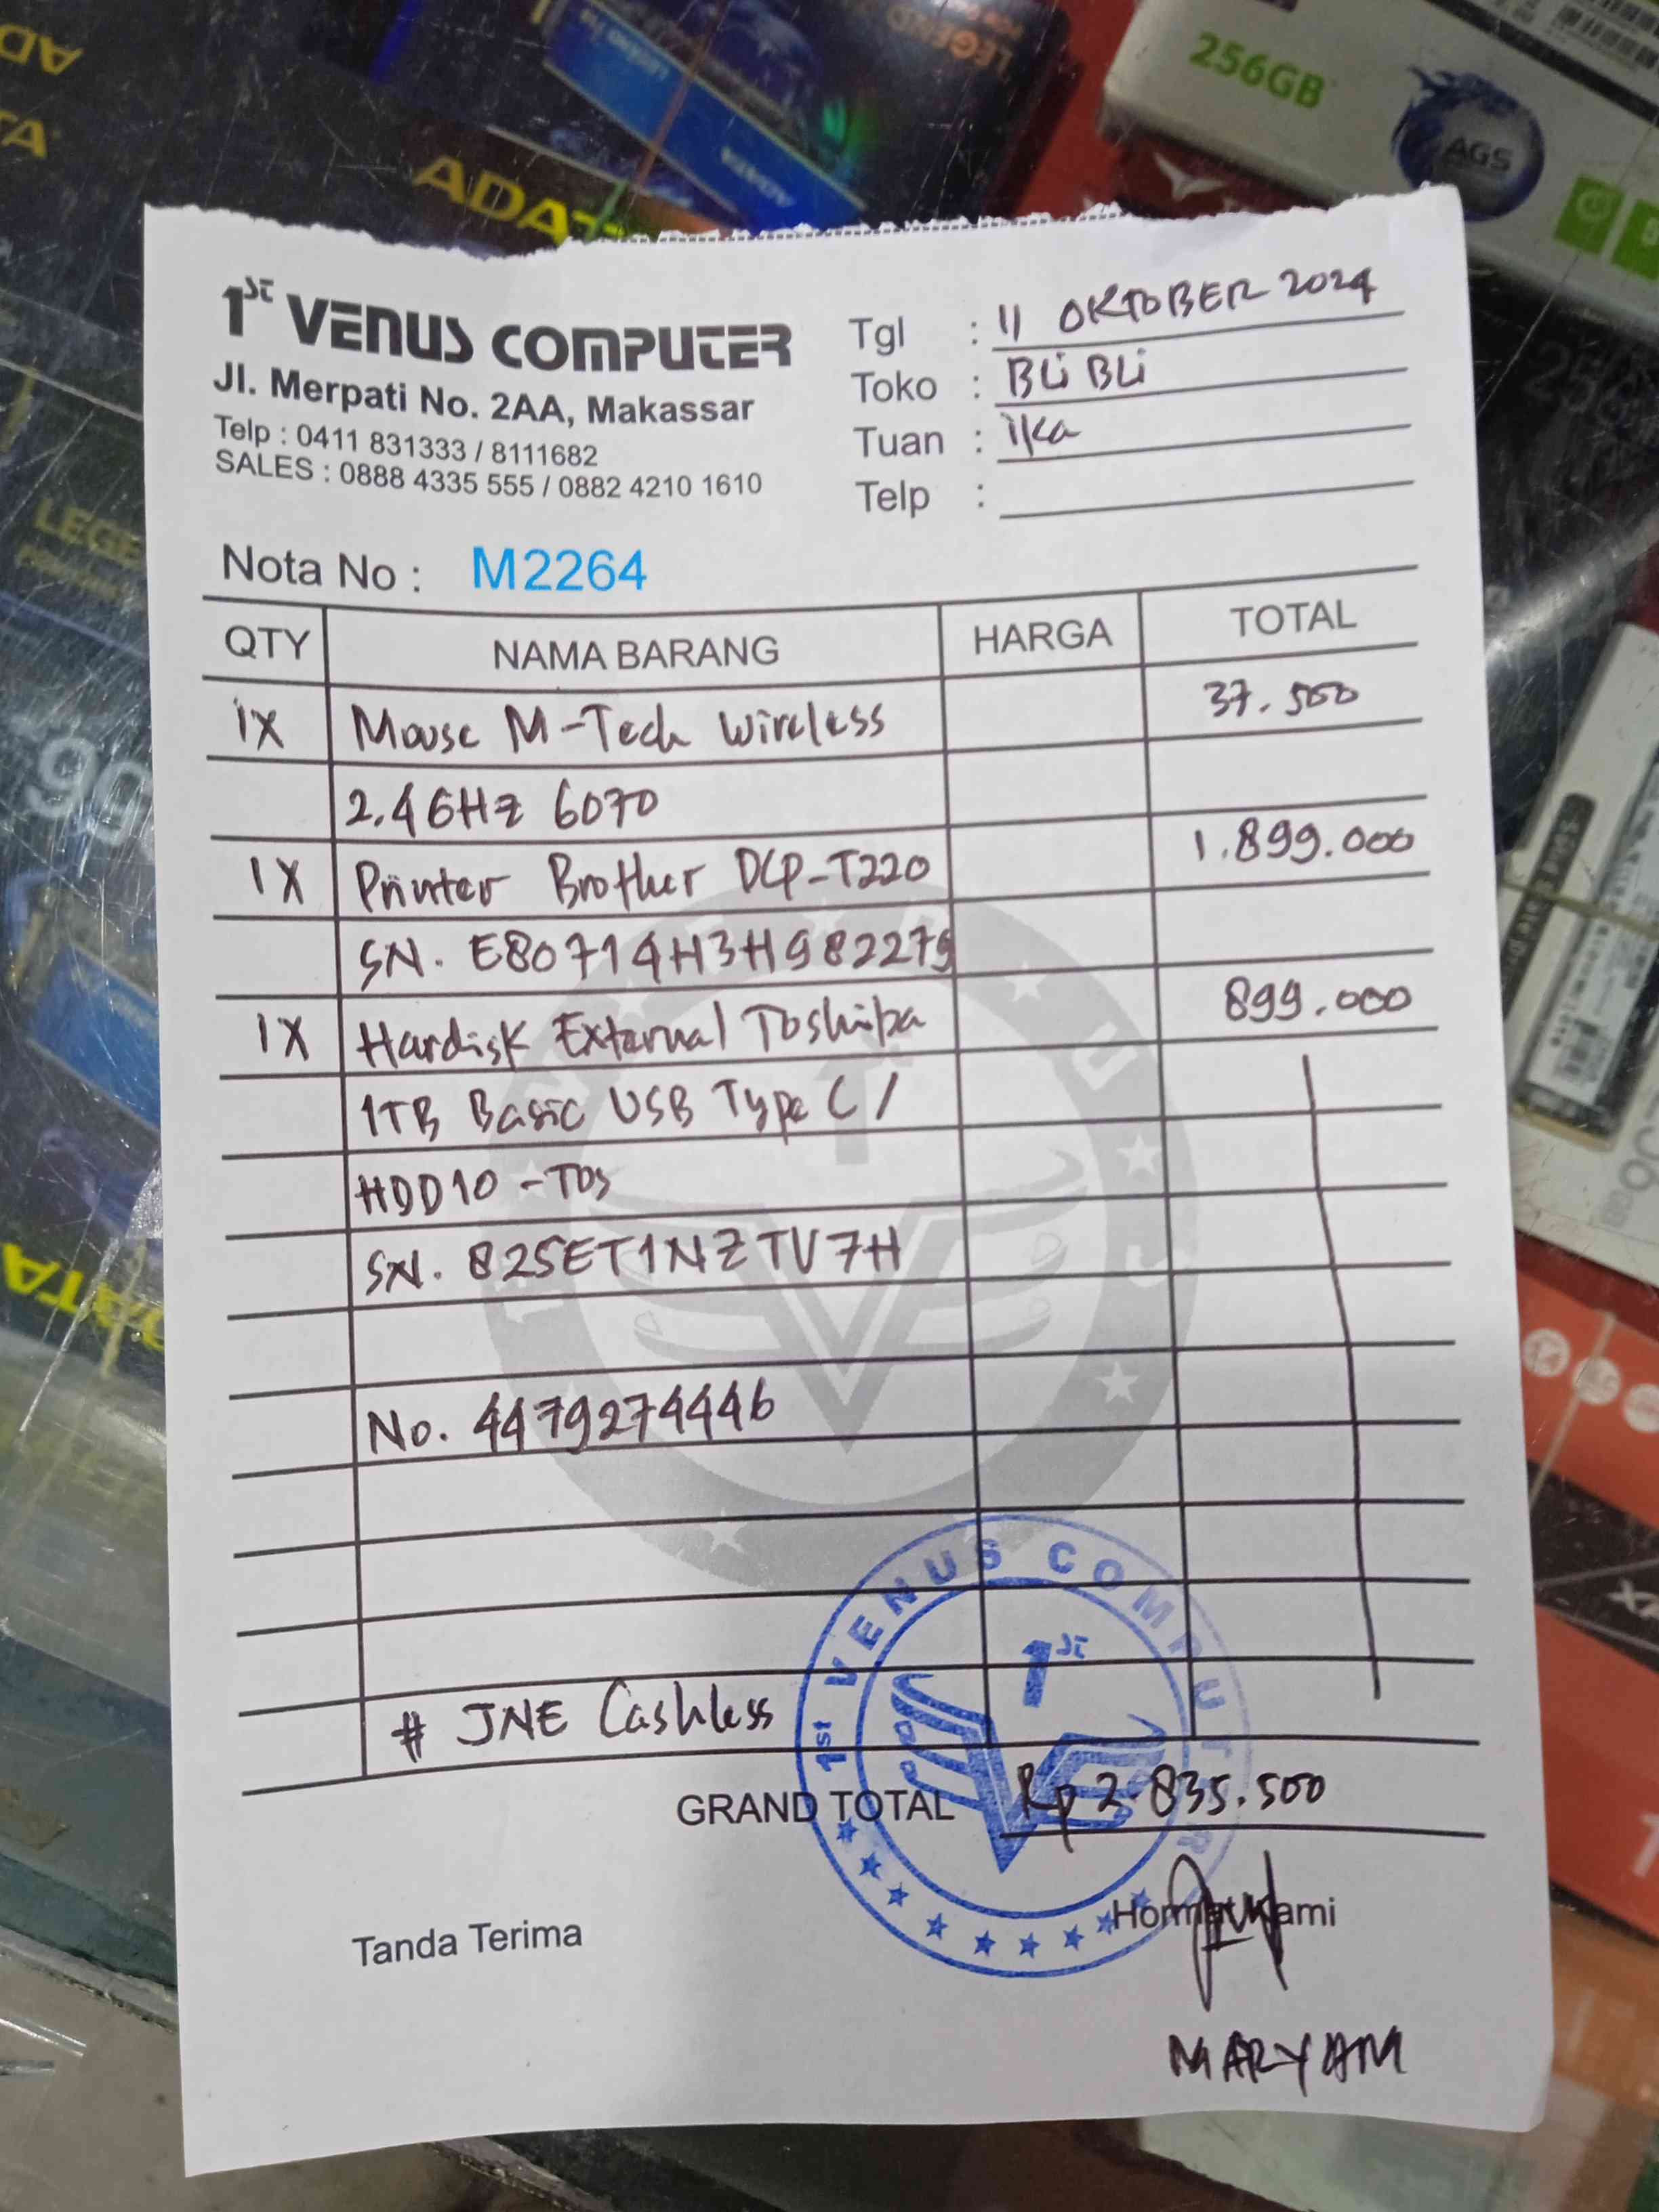 ADATA
LEGEND
256GB
AGS
1ST VENUS COMPUTER
Jl. Merpati No. 2AA, Makassar
Telp : 0411 831333 / 8111682
SALES : 0888 4335 555 / 0882 4210 1610
Tgl : 11 OKTOBER 2024
Toko : BLiBLi
Tuan : ika
Telp :
Nota No : M2264
QTY NAMA BARANG HARGA TOTAL
1X Mouse M-Tech Wireless 37.500
2.4GHz 6070
1X Printer Brother DCP-T220 1.899.000
SN. E80714H3H982279
1X Hardisk External Toshiba 899.000
1TB Basic USB Type C /
HDD10-TOS
SN. 825ET1NZTV7H
No. 4479274446
# JNE Cashless
1st VENUS COMPUTER
1ST
GRAND TOTAL Rp 2.835.500
Tanda Terima
Hormat Kami
MARYAM